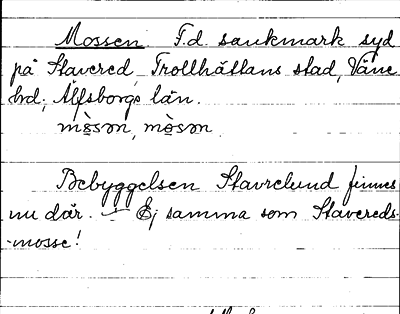 Mossen F.d. sankmark syd
på Stavered, Trollhättans stad, Väne
hd, Älfsborgs län.
mòsən, mòsən
Bebyggelsen Stavrelund finnes
nu där. — Ej samma som Stavereds-
-mosse!